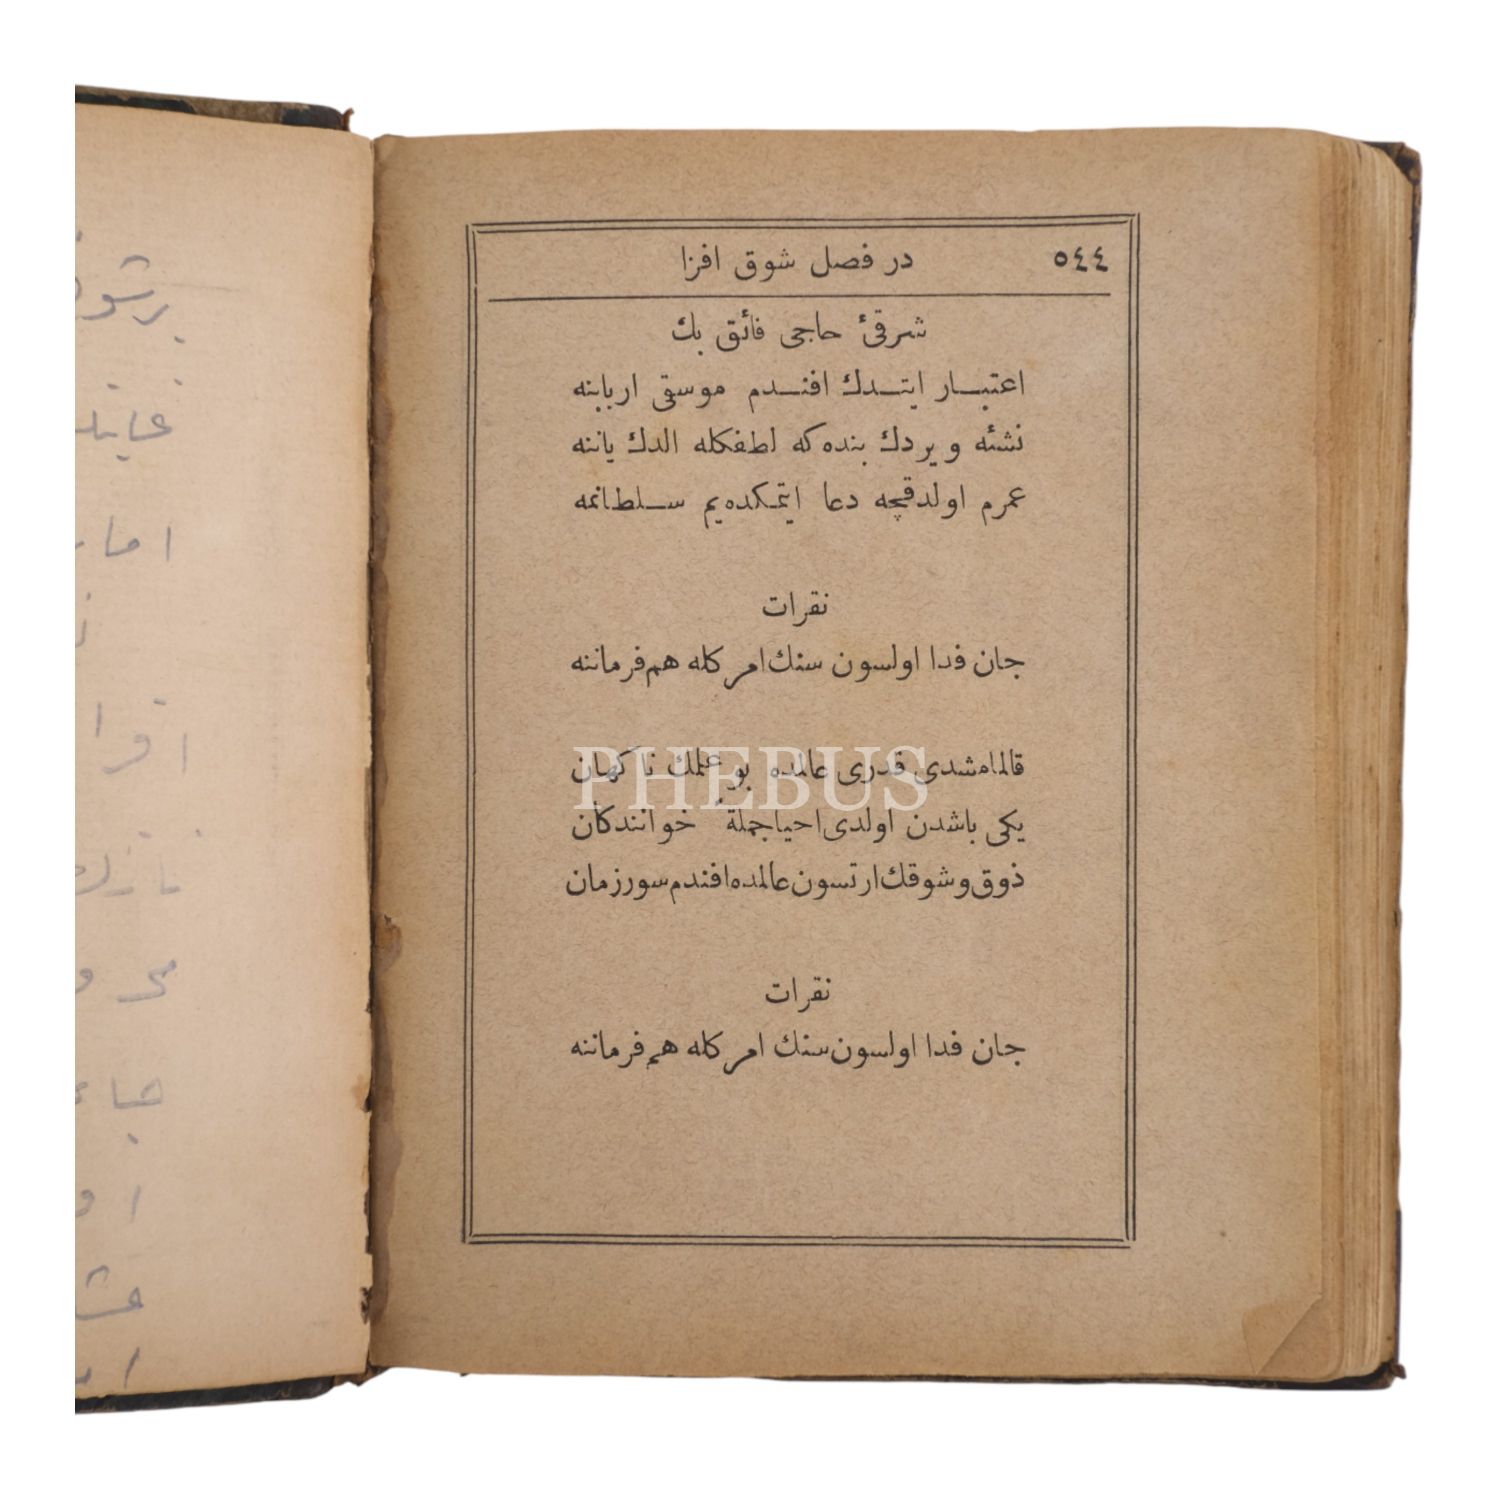 در فصل شوق افزا ٥٤٤
شرقیٔ حاجی فائق بك
اعتبار ایتدك افندم موسقی اربابنه
نشئه ویردك بنده كه لطفكله الدك یاننه
عمرم اولدقچه دعا ایتمكده یم سلطانمه
نقرات
جان فدا اولسون سنك امر كله هم فرماننه
قالمامشدی قدری عالمده بو علمك ناكهان
یكی باشدن اولدی احیا جملۀ خوانندكان
ذوق و شوقك ارتسون عالمده افندم سورزمان
نقرات
جان فدا اولسون سنك امر كله هم فرماننه
PHEBUS